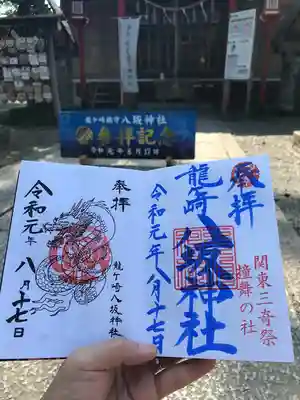 龍ケ崎鎮守八坂神社
参拝記念
令和元年8月17日
奉拝
龍崎
八坂神社
令和元年八月十七日
関東三奇祭
撞舞の社
奉拝
龍ケ崎八坂神社
令和元年
八月十七日